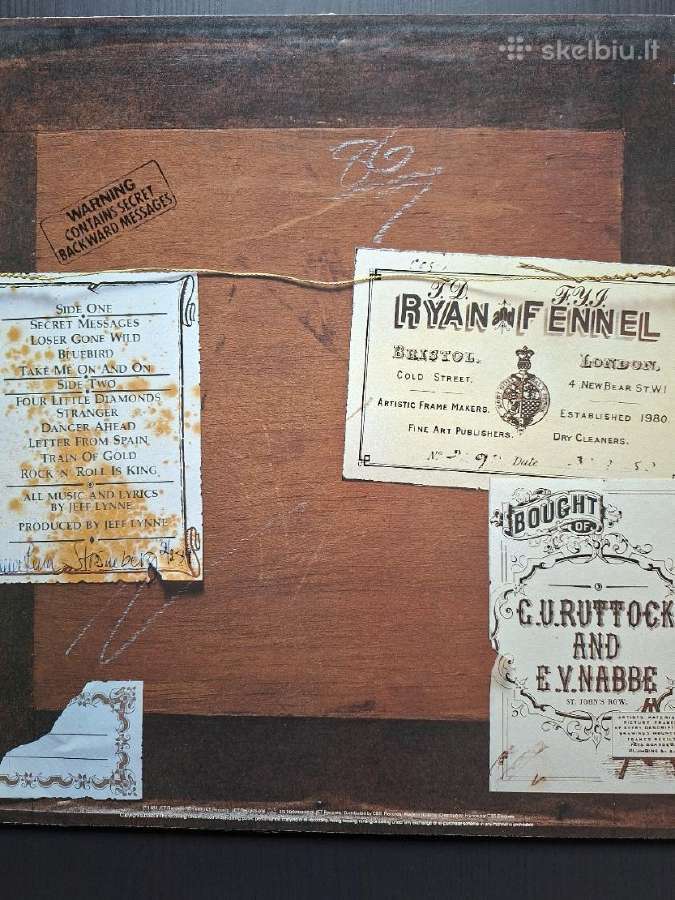 skelbiu.lt
WARNING
CONTAINS SECRET
BACKWARD MESSAGES
SIDE ONE
SECRET MESSAGES
LOSER GONE WILD
BLUEBIRD
TAKE ME ON AND ON
SIDE TWO
FOUR LITTLE DIAMONDS
STRANGER
DANGER AHEAD
LETTER FROM SPAIN
TRAIN OF GOLD
ROCK 'N' ROLL IS KING
ALL MUSIC AND LYRICS
BY JEFF LYNNE
PRODUCED BY JEFF LYNNE
T.D. F.Y.I.
RYAN FENNEL
BRISTOL. LONDON.
COLD STREET. 4 NEW BEAR ST. W1
ARTISTIC FRAME MAKERS. ESTABLISHED 1980
FINE ART PUBLISHERS. DRY CLEANERS.
No Date
BOUGHT
OF
G.U.RUTTOCK
AND
E.V.NABBE
ST. JOHN'S ROW.